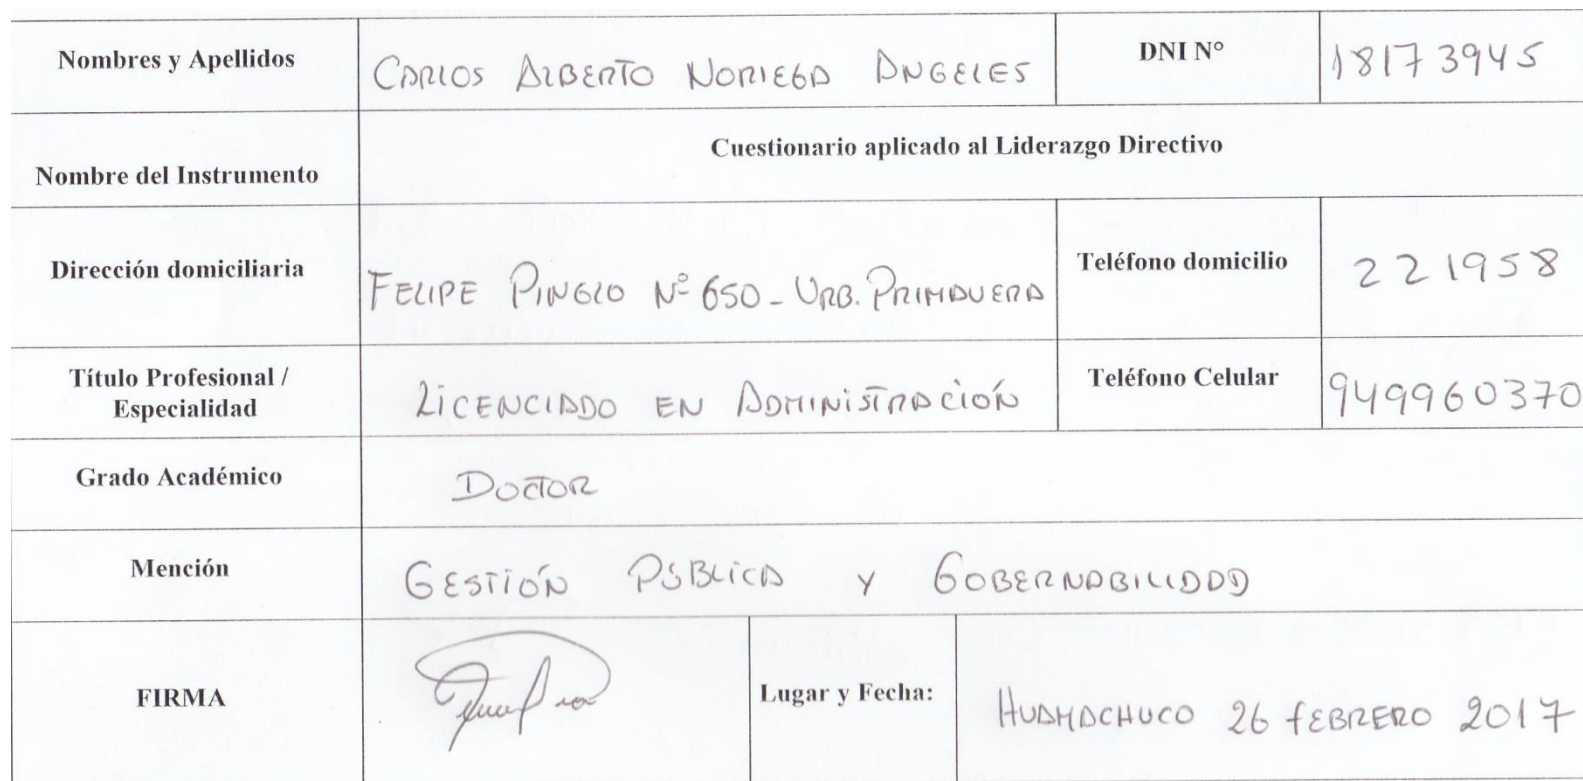 Nombres y Apellidos CARLOS ALBERTO NORIEGA ANGELES DNI N° 18173945
Cuestionario aplicado al Liderazgo Directivo
Nombre del Instrumento
Dirección domiciliaria FELIPE PINGLO Nº 650 - URB. PRIMAVERA Teléfono domicilio 221958
Título Profesional /
Especialidad LICENCIADO EN ADMINISTRACIÓN Teléfono Celular 949960370
Grado Académico DOCTOR
Mención GESTIÓN PÚBLICA Y GOBERNABILIDAD
FIRMA Lugar y Fecha: HUAMACHUCO 26 FEBRERO 2017